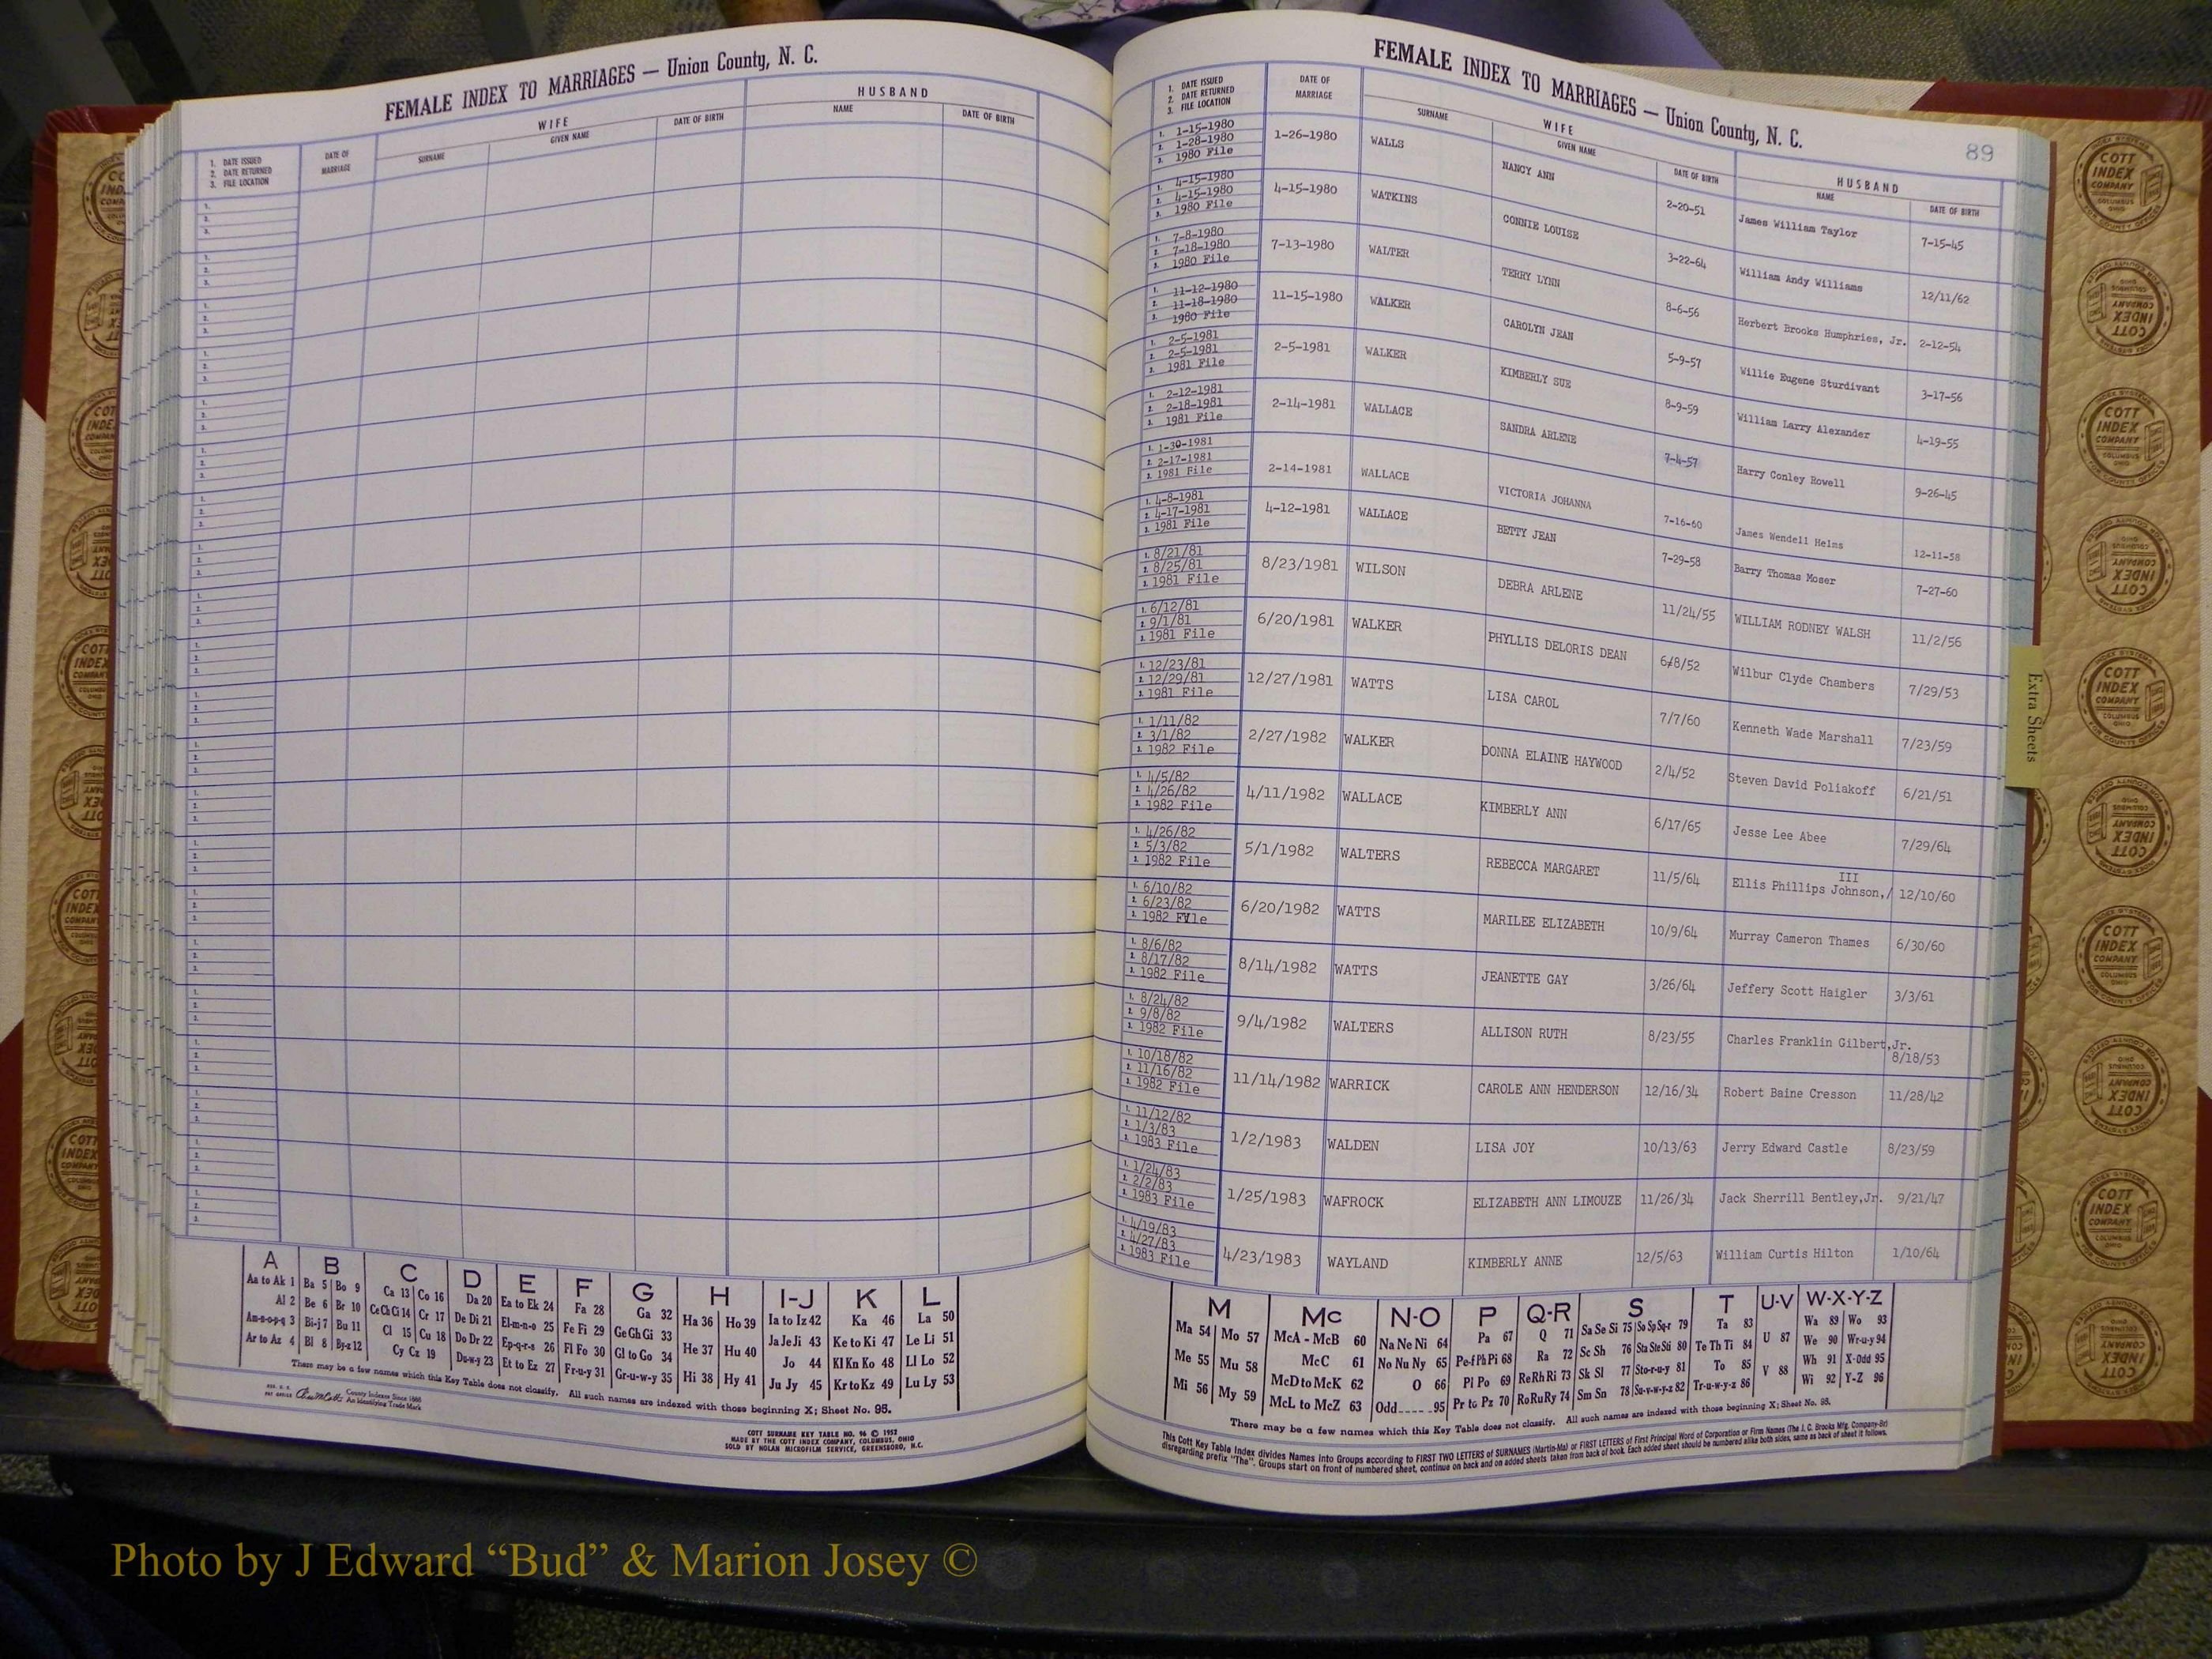 FEMALE INDEX TO MARRIAGES — Union County, N. C.
WIFE HUSBAND
1. DATE ISSUED
2. DATE RETURNED
3. FILE LOCATION
DATE OF MARRIAGE SURNAME GIVEN NAME DATE OF BIRTH NAME DATE OF BIRTH
A B C D E F G H I-J K L
Aa to Ak 1 Ba 5 Bo 9 Ca 13 Co 16 Da 20 Ea to Ek 24 Fa 28 Ga 32 Ha 36 Ho 39 Ia to Iz 42 Ka 46 La 50
Al 2 Be 6 Br 10 Ce Ch Ci 14 Cr 17 De Di 21 El-m-n-o 25 Fe Fi 29 Ge Gh Gi 33 He 37 Hu 40 Ja Je Ji 43 Ke to Ki 47 Le Li 51
Am-n-o-p-q 3 Bi-j 7 Bu 11 Cl 15 Cu 18 Do Dr 22 Ep-q-r-s 26 Fl Fo 30 Gl to Go 34 Hi 38 Hy 41 Jo 44 Kl Kn Ko 48 Ll Lo 52
Ar to Az 4 Bl 8 By-z 12 Cy Cz 19 Du-w-y 23 Et to Ez 27 Fr-u-y 31 Gr-u-w-y 35 Ju Jy 45 Kr to Kz 49 Lu Ly 53
There may be a few names which this Key Table does not classify. All such names are indexed with those beginning X; Sheet No. 95.
County Indexes Since 1888
An Identifying Trade Mark
COTT SURNAME KEY TABLE NO. 96 © 1953
MADE BY THE COTT INDEX COMPANY, COLUMBUS, OHIO
SOLD BY NOLAN MICROFILM SERVICE, GREENSBORO, N.C.
FEMALE INDEX TO MARRIAGES — Union County, N. C.
89
1. DATE ISSUED
2. DATE RETURNED
3. FILE LOCATION
DATE OF MARRIAGE
WIFE HUSBAND
SURNAME GIVEN NAME DATE OF BIRTH NAME DATE OF BIRTH
1. 1-15-1980
2. 1-28-1980
3. 1980 File
1-26-1980 WALLS NANCY ANN 2-20-51 James William Taylor 7-15-45
1. 4-15-1980
2. 4-15-1980
3. 1980 File
4-15-1980 WATKINS CONNIE LOUISE 3-22-64 William Andy Williams 12/11/62
1. 7-8-1980
2. 7-18-1980
3. 1980 File
7-13-1980 WALTER TERRY LYNN 8-6-56 Herbert Brooks Humphries, Jr. 2-12-54
1. 11-12-1980
2. 11-18-1980
3. 1980 File
11-15-1980 WALKER CAROLYN JEAN 5-9-57 Willie Eugene Sturdivant 3-17-56
1. 2-5-1981
2. 2-5-1981
3. 1981 File
2-5-1981 WALKER KIMBERLY SUE 8-9-59 William Larry Alexander 4-19-55
1. 2-12-1981
2. 2-18-1981
3. 1981 File
2-14-1981 WALLACE SANDRA ARLENE 7-4-57 Harry Conley Rowell 9-26-45
1. 1-30-1981
2. 2-17-1981
3. 1981 File
2-14-1981 WALLACE VICTORIA JOHANNA 7-16-60 James Wendell Helms 12-11-58
1. 4-8-1981
2. 4-17-1981
3. 1981 File
4-12-1981 WALLACE BETTY JEAN 7-29-58 Barry Thomas Moser 7-27-60
1. 8/21/81
2. 8/25/81
3. 1981 File
8/23/1981 WILSON DEBRA ARLENE 11/24/55 WILLIAM RODNEY WALSH 11/2/56
1. 6/12/81
2. 9/1/81
3. 1981 File
6/20/1981 WALKER PHYLLIS DELORIS DEAN 6/8/52 Wilbur Clyde Chambers 7/29/53
1. 12/23/81
2. 12/29/81
3. 1981 File
12/27/1981 WATTS LISA CAROL 7/7/60 Kenneth Wade Marshall 7/23/59
1. 1/11/82
2. 3/1/82
3. 1982 File
2/27/1982 WALKER DONNA ELAINE HAYWOOD 2/4/52 Steven David Poliakoff 6/21/51
1. 4/5/82
2. 4/26/82
3. 1982 File
4/11/1982 WALLACE KIMBERLY ANN 6/17/65 Jesse Lee Abee 7/29/64
1. 4/26/82
2. 5/3/82
3. 1982 File
5/1/1982 WALTERS REBECCA MARGARET 11/5/64 Ellis Phillips Johnson,/ III 12/10/60
1. 6/10/82
2. 6/23/82
3. 1982 File
6/20/1982 WATTS MARILEE ELIZABETH 10/9/64 Murray Cameron Thames 6/30/60
1. 8/6/82
2. 8/17/82
3. 1982 File
8/14/1982 WATTS JEANETTE GAY 3/26/64 Jeffery Scott Haigler 3/3/61
1. 8/24/82
2. 9/8/82
3. 1982 File
9/4/1982 WALTERS ALLISON RUTH 8/23/55 Charles Franklin Gilbert,Jr. 8/18/53
1. 10/18/82
2. 11/16/82
3. 1982 File
11/14/1982 WARRICK CAROLE ANN HENDERSON 12/16/34 Robert Baine Cresson 11/28/42
1. 11/12/82
2. 1/3/83
3. 1983 File
1/2/1983 WALDEN LISA JOY 10/13/63 Jerry Edward Castle 8/23/59
1. 1/24/83
2. 2/2/83
3. 1983 File
1/25/1983 WAFROCK ELIZABETH ANN LIMOUZE 11/26/34 Jack Sherrill Bentley,Jr. 9/21/47
1. 4/19/83
2. 4/27/83
3. 1983 File
4/23/1983 WAYLAND KIMBERLY ANNE 12/5/63 William Curtis Hilton 1/10/64
Extra Sheets
M Mc N-O P Q-R S T U-V W-X-Y-Z
Ma 54 Mo 57 McA - McB 60 Na Ne Ni 64 Pa 67 Q 71 Sa Se Si 75 So Sp Sq-r 79 Ta 83 U 87 Wa 89 Wo 93
Me 55 Mu 58 McC 61 No Nu Ny 65 Pe-f Ph Pi 68 Ra 72 Sc Sh 76 Sta Ste Sti 80 Te Th Ti 84 V 88 We 90 Wr-u-y 94
Mi 56 My 59 McD to McK 62 O 66 Pl Po 69 Re Rh Ri 73 Sk Sl 77 Sto-r-u-y 81 To 85 Wh 91 X-Odd 95
McL to McZ 63 Odd 95 Pr to Pz 70 Ro Ru Ry 74 Sm Sn 78 Su-v-w-y-z 82 Tr-u-w-y-z 86 Wi 92 Y-Z 96
There may be a few names which this Key Table does not classify. All such names are indexed with those beginning X; Sheet No. 95.
This Cott Key Table Index divides Names into Groups according to FIRST TWO LETTERS of SURNAMES (Martin-Ma) or FIRST LETTERS of First Principal Word of Corporation or Firm Names (The J. C. Brooks Mfg. Company-Br)
disregarding prefix "The". Groups start on front of numbered sheet, continue on back and on added sheets taken from back of book. Each added sheet should be numbered alike both sides, same as back of sheet it follows.
COTT INDEX COMPANY COLUMBUS OHIO
Photo by J Edward “Bud” & Marion Josey ©